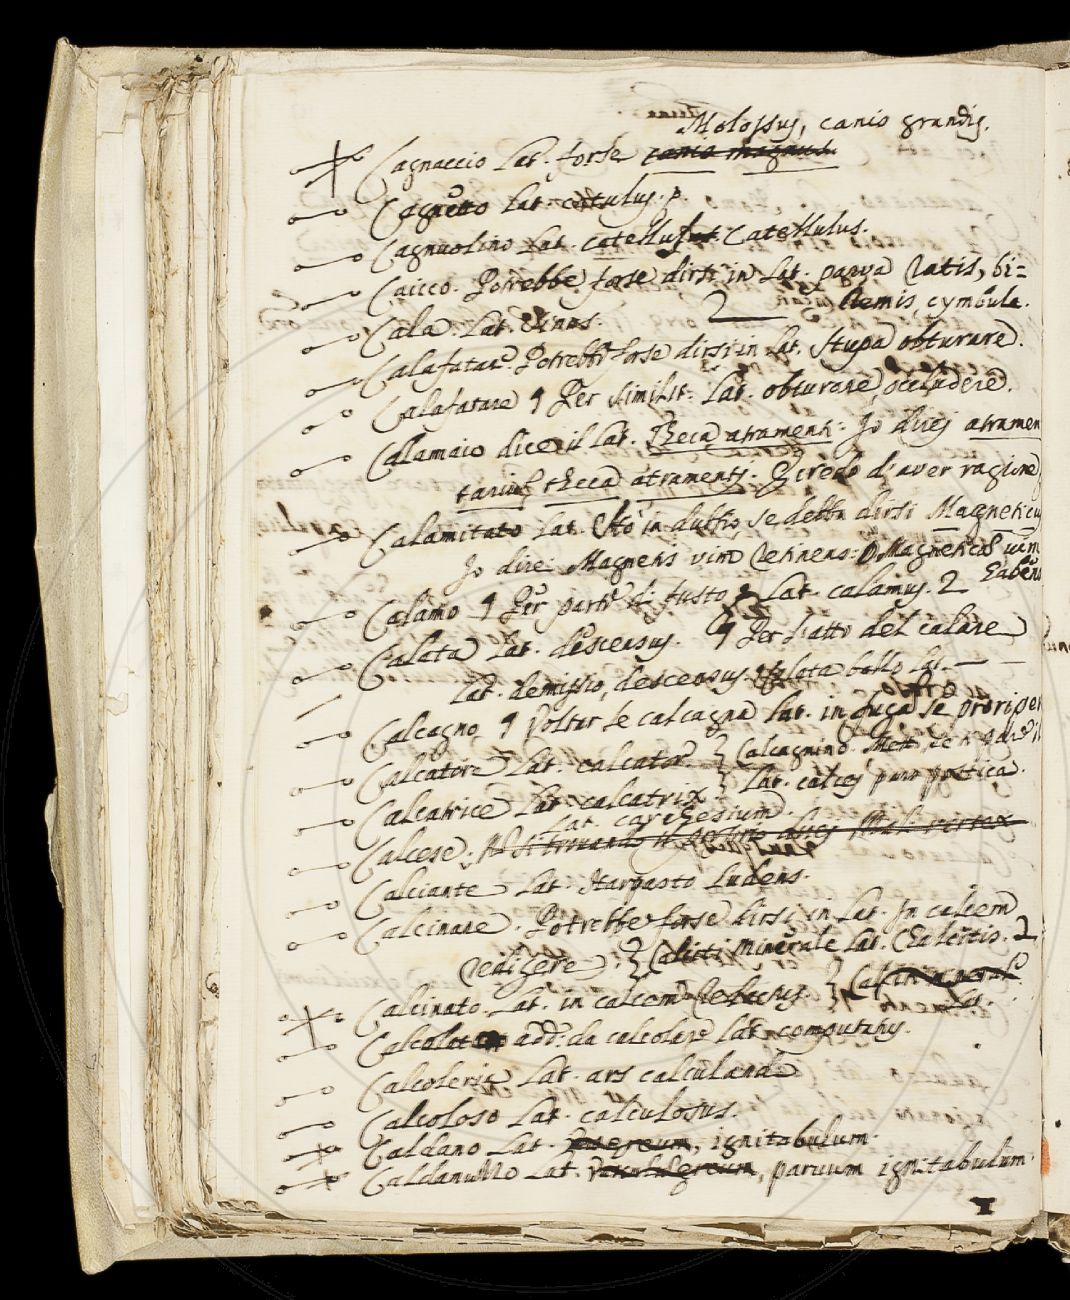 Molossus, canis grandis.
Cagnaccio Lat. forse canis magnus.
Cagnetto Lat. catulus.
Cagnuolino Lat. catellus Catellulus.
Caicco. Potrebbe forse dirsi in Lat. parva ratis, bi=
remis, cymbula.
Cala. Lat. sinus. 2
Calafatare. Potrebbe forse dirsi in Lat. stupa obturare.
Calafatare ¶ Per similit: Lat. obturare, occludere.
Calamaio dice il Lat. Theca atramenti: Io direj atramen
tarius theca atramentj. E credo d'aver ragione
Calamitato Lat. Stò in dubbio, se debba dirsi Magneticus
Io direi Magnetis vim retinens: o Magneticã vim
habens
Calamo ¶ Per parte di fusto Lat. calamus. 2
Calata Lat. descensus. ¶ Per l'atto del calare
Lat. demissio, descensus. Calata ballo Lat. — —
Calcagno ¶ Voltar le calcagna Lat. in fuga se proriper
Calcatore Lat. calcator. } Calcagnino.
Calcatrice Lat. calcatrix. } Lat. calcej pars postica.
Lat. carchesium.
Calcese.
Calciante Lat. Harpasto Ludens.
Calcinare. Potrebbe forse dirsi in Lat. In calcem
redigere. } Calciti Minerale Lat. Chalcitis. 2
Calcinato. Lat. in calcem redactus. }
add: da calcolare Lat.
Calcoleria Lat. ars
Calcoloso Lat. calculosus.
Caldano Lat. ignitabulum.
Caldanuzzo Lat. parvum ignitabulum.